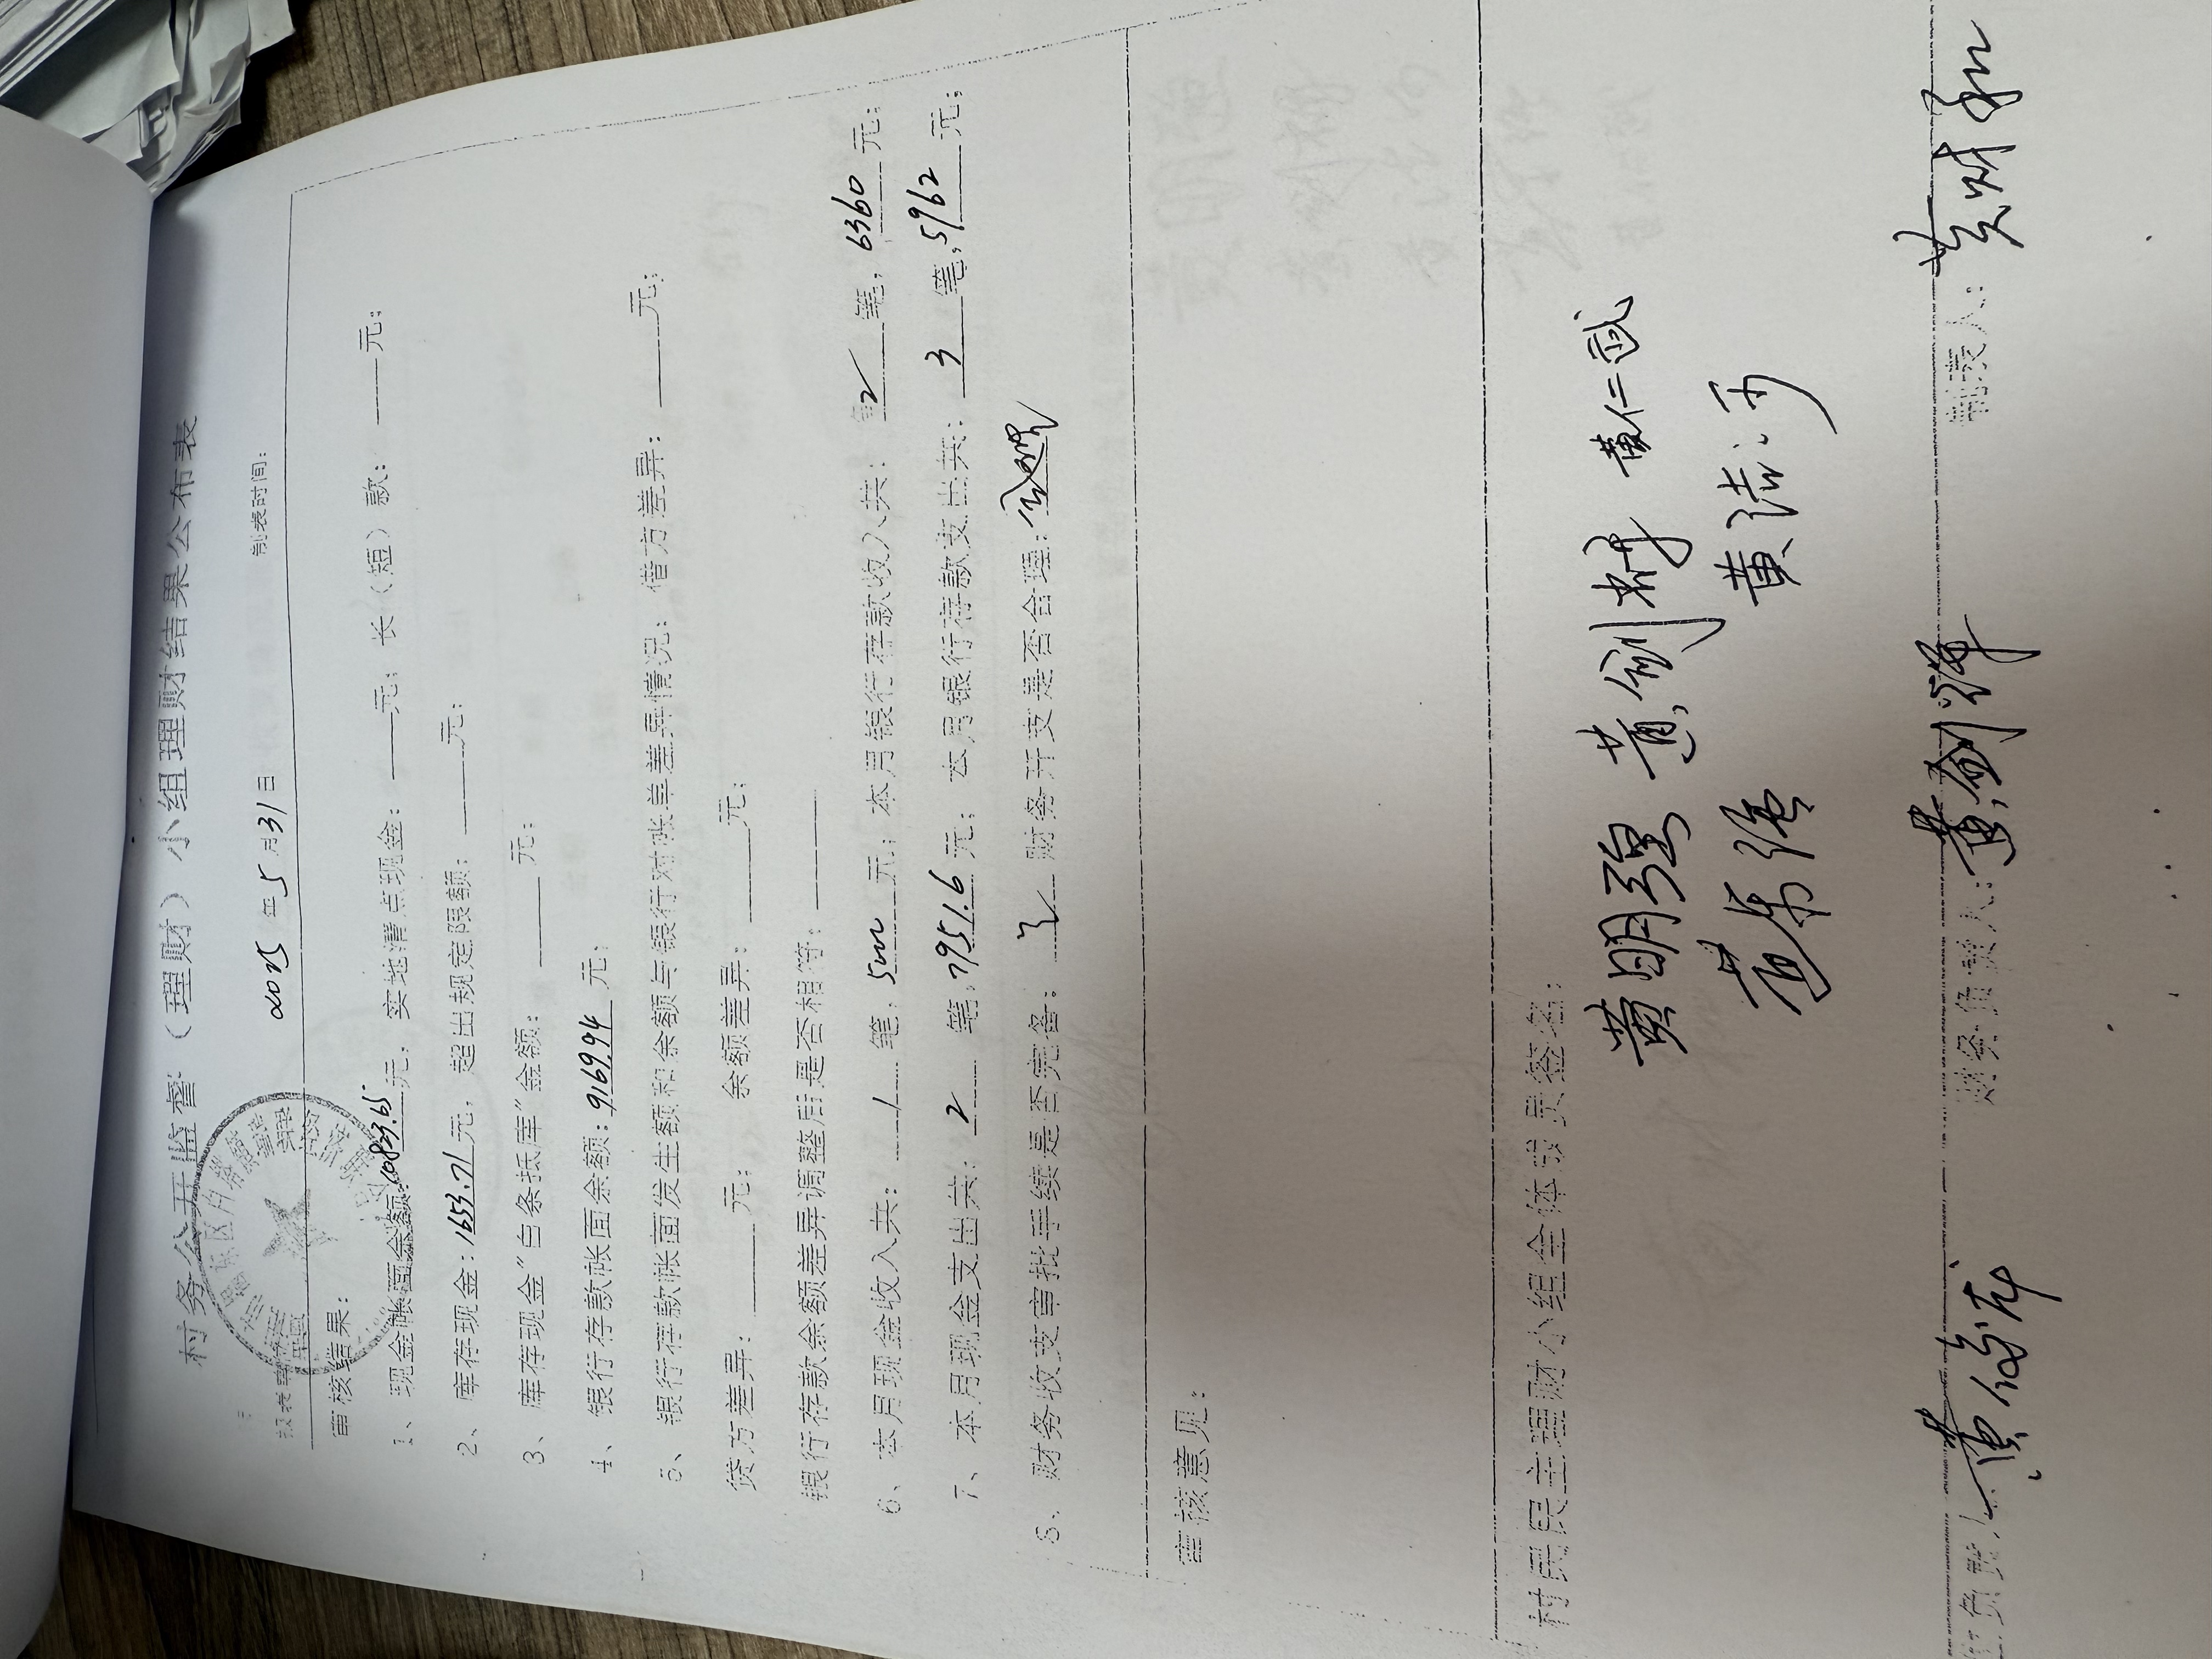 村务公开监督（理财）小组理财结果公布表
2025年5月31日 制表时间：
审核结果：
1、现金帐面余额：10823.65元，实地清点现金：——元；长（短）款：——元；
2、库存现金：1653.71元，超出规定限额：____元；
3、库存现金“白条抵库”金额：____元；
4、银行存款帐面余额：9169.94元；
5、银行存款帐面发生额和余额与银行对帐单差异情况：借方差异：____元；
贷方差异：____元；余额差异：____元；
银行存款余额差异调整后是否相符：____
6、本月现金收入共：1笔，5000元；本月银行存款收入共：2笔，6360元；
7、本月现金支出共：2笔，7951.6元；本月银行存款支出共：3笔，5962元；
8、财务收支审批手续是否完备：是 财务开支是否合理：合理
审核意见：
村民民主理财小组全体成员签名：
黄明强 黄剑辉 黄仁武
黄
负责人： 黄 财务负责人：黄剑辉 制表人：黄